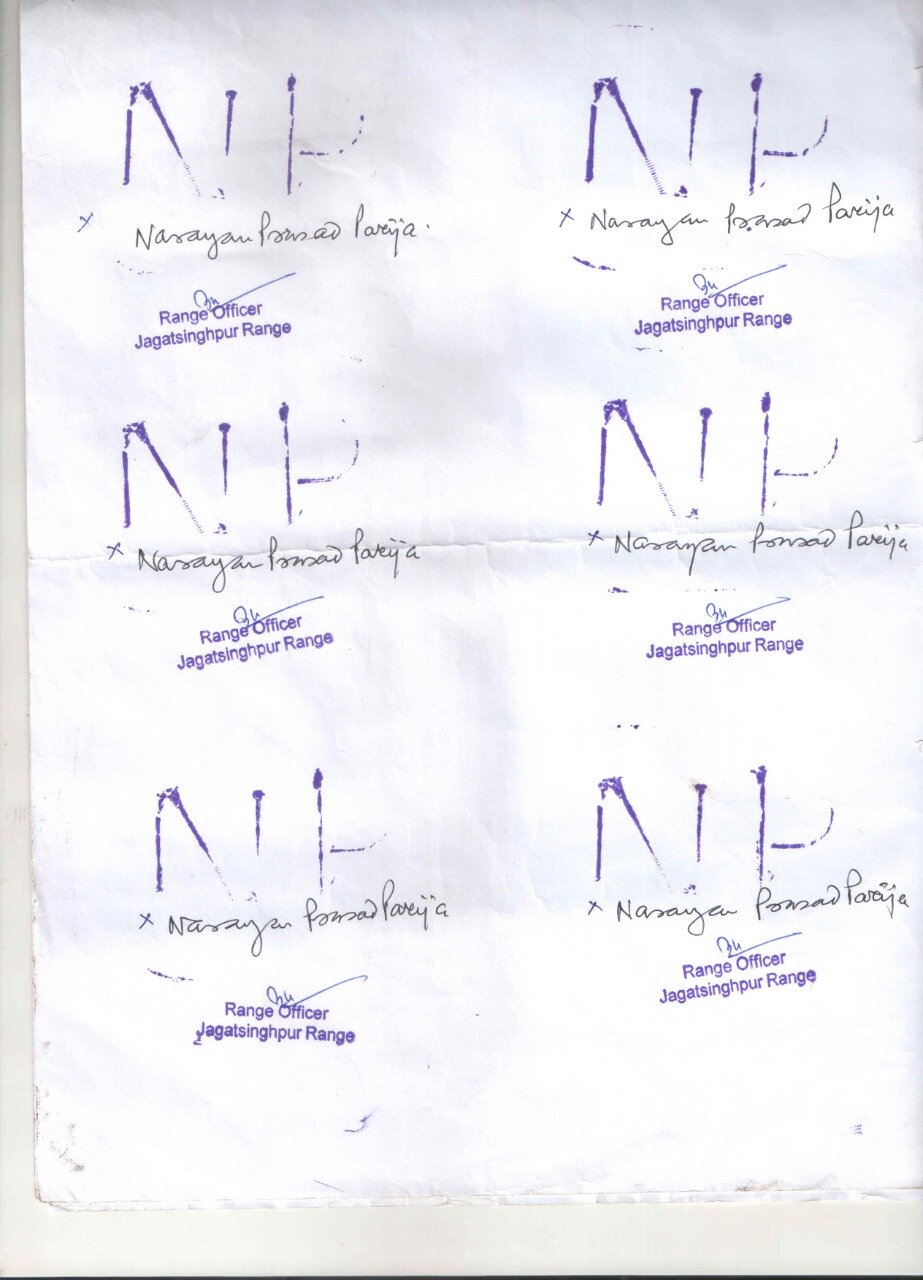 N P
N P
x Narayan Prasad Parija.
x Narayan Prasad Parija
Range Officer
Jagatsinghpur Range
Range Officer
Jagatsinghpur Range
N P
N P
x Narayan Prasad Parija
x Narayan Prasad Parija
Range Officer
Jagatsinghpur Range
Range Officer
Jagatsinghpur Range
N P
N P
x Narayan Prasad Parija
x Narayan Prasad Parija
Range Officer
Jagatsinghpur Range
Range Officer
Jagatsinghpur Range